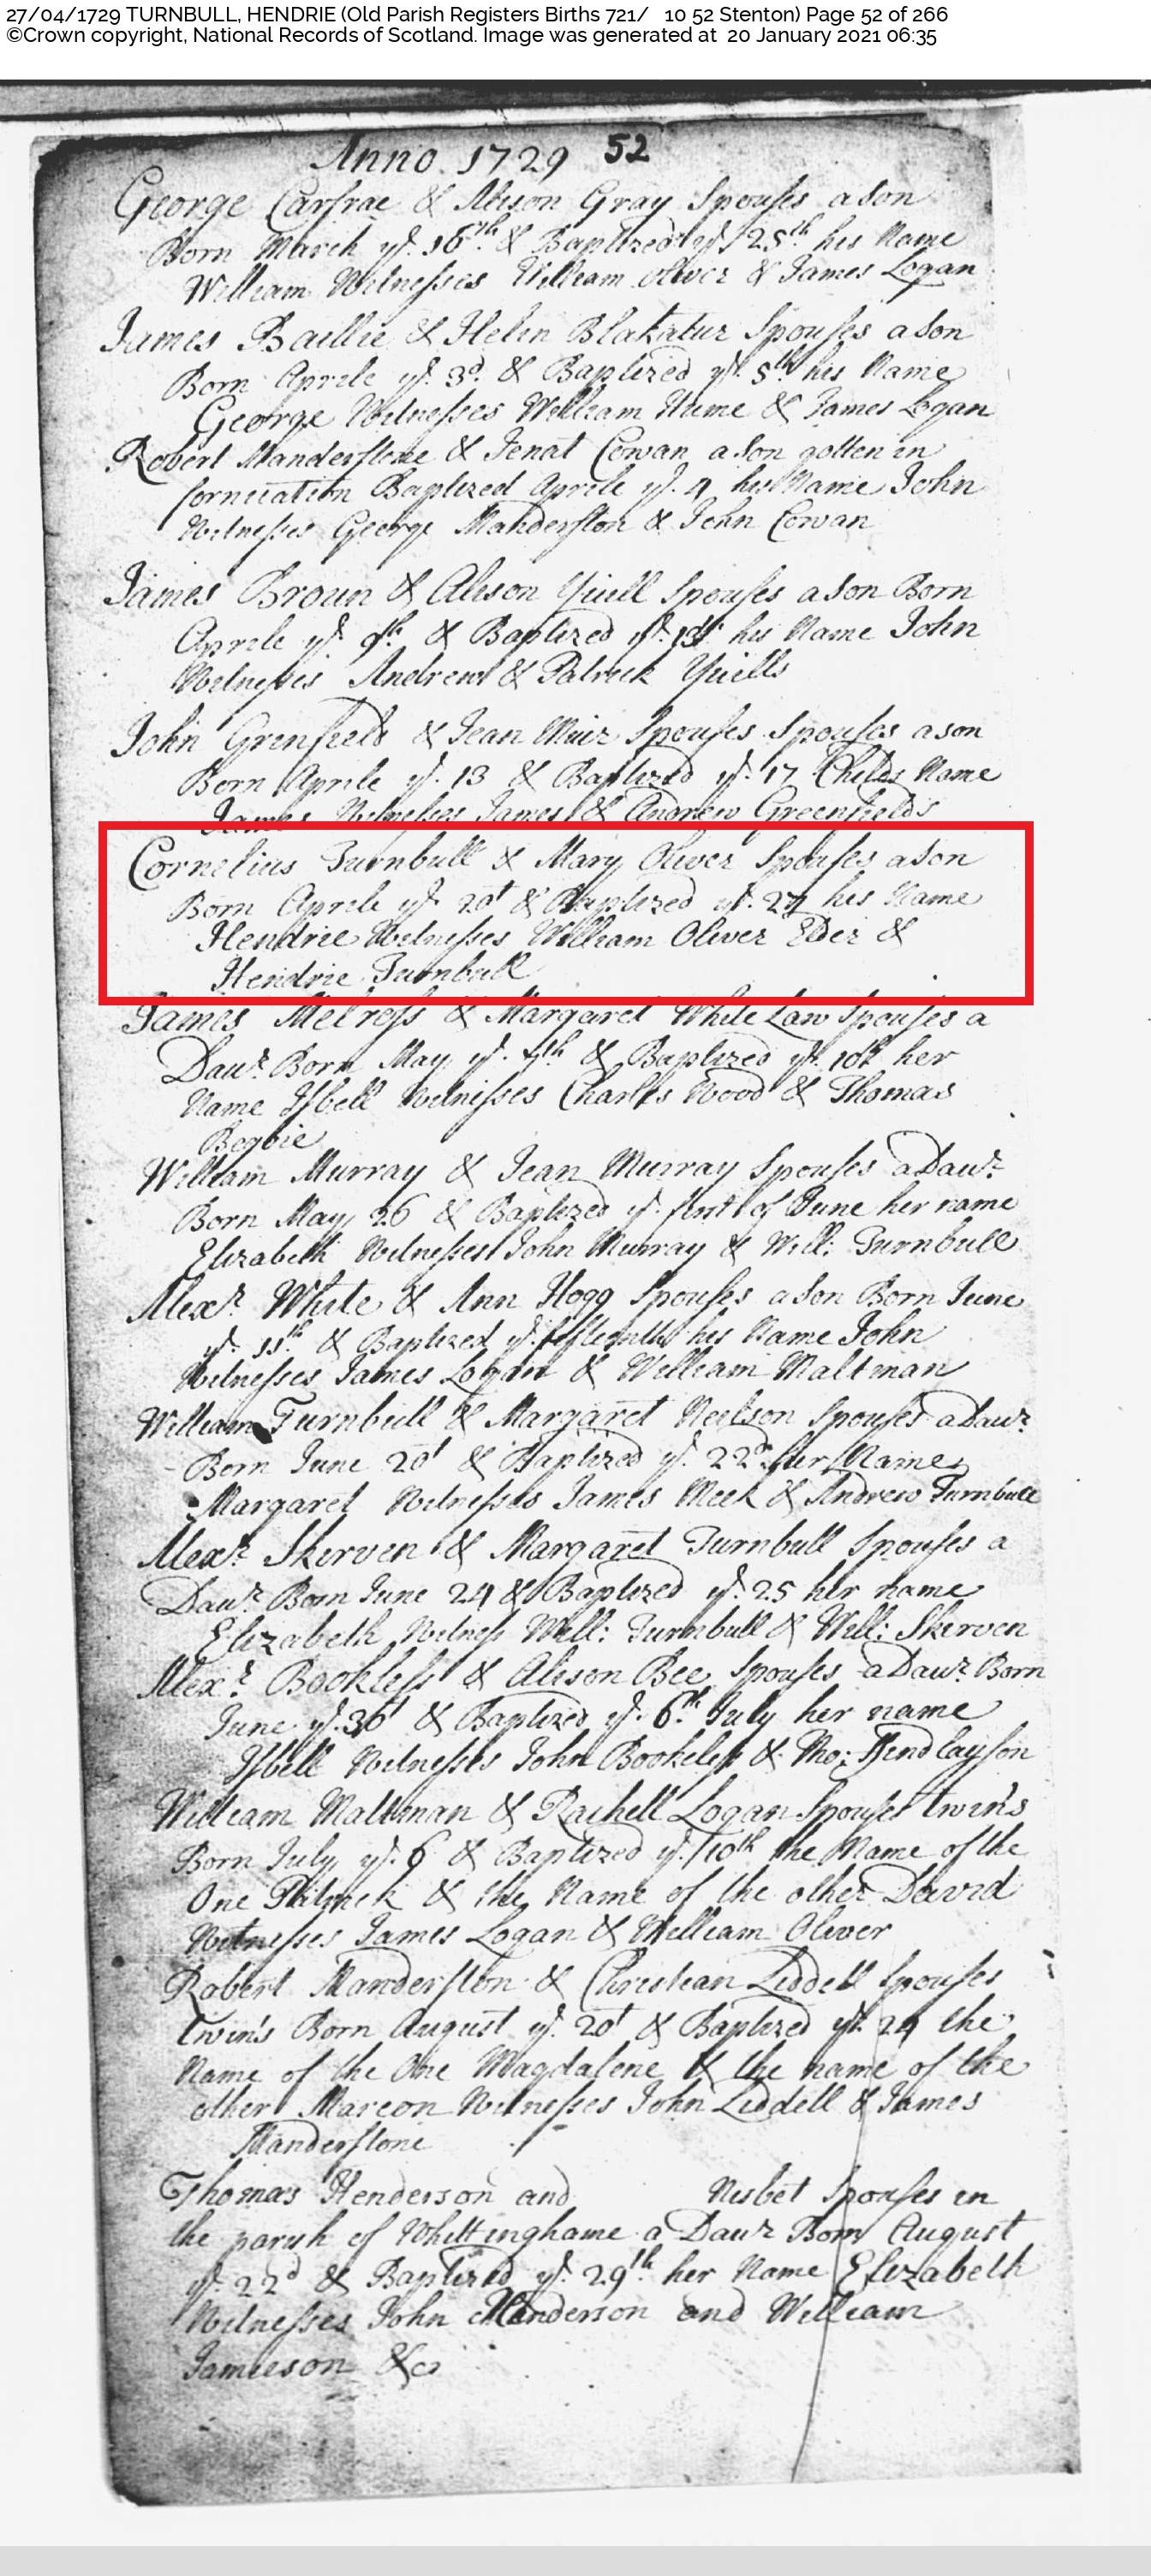 27/04/1729 TURNBULL, HENDRIE (Old Parish Registers Births 721/ 10 52 Stenton) Page 52 of 266
©Crown copyright, National Records of Scotland. Image was generated at 20 January 2021 06:35
Anno 1729 52
George Carfrae & Alison Gray Spouses a Son
Born March yᵉ. 16th. & Baptized yᵉ. 25th. his Name
William Witnesses William Oliver & James Logan
James Baillie & Helin Blakatur Spouses a Son
Born Aprile yᵉ. 3d. & Baptized yᵉ. 5th his Name
George Witnesses William Hume & James Logan
Robert Manderstone & Jenat Cowan a Son gotten in
fornication Baptized Aprile yᵉ. 4 his Name John
Witnesses George Manderston & John Cowan
James Broun & Alison Yuill Spouses a Son Born
Aprile yᵉ. 9th. & Baptized yᵉ. his Name John
Witnesses Andrew & Patrick Yuills
John Grenfield & Jean Muir Spouses Spouses a son
Born Aprile yᵉ. 13 & Baptized yᵉ. 17 Childs Name
James Witnesses James & Andrew Greenfields
Cornelius Turnbull & Mary Oliver Spouses a Son
Born Aprile yᵉ 20t & Baptized yᵉ. 27 his Name
Hendrie Witnesses William Oliver Elder &
Hendrie Turnbull
James Melross & Margaret White Law Spouses a
Dawr. Born May yᵉ. 4th & Baptized yᵉ. 10th her
Name Isbell Witnisses Charles Wood & Thomas
Begbie
William Murray & Jean Murray Spouses a Dawr.
Born May 26 & Baptized yᵉ first of June her name
Elizabeth Witnesses John Murray & Will: Turnbull
Alexr. White & Ann Hogg Spouses a Son Born June
yᵉ. 11th. & Baptized yᵉ. fifteenth his Name John
Witnesses James Logan & William Maltman
William Turnbull & Margaret Neilson Spouses a Dawr
Born June 20t & Baptized yᵉ. 22d. her Name
Margaret Witnesses James Meek & Andrew Turnbull
Alexr. Skerven & Margaret Turnbull Spouses a
Dawr. Born June 24 & Baptized yᵉ. 25 her name
Elizabeth Witness Will: Turnbull & Will: Skerven
Alexr. Bookless & Alison Bee Spouses a Dawr. Born
June yᵉ. 30t & Baptized yᵉ. 6th. July her name
Isbell Witnesses John Bookeless & Tho: Findlayson
William Maltman & Rachell Logan Spouses twins
Born July yᵉ. 6 & Baptized yᵉ. 10th the Name of the
One Patrick & the Name of the other David
Witnesses James Logan & William Oliver
Robert Manderston & Christian Liddell Spouses
Twins Born August yᵉ. 20t & Baptized yᵉ. 24 the
Name of the One Magdalene & the name of the
other Mareon Witnesses John Liddell & James
Manderstone
Thomas Henderson and Nisbet Spouses in
the parish of Whittinghame a Dawr Born August
yᵉ. 22d & Baptized yᵉ. 29th. her Name Elizabeth
Witnesses John Henderson and William
Jamieson &c